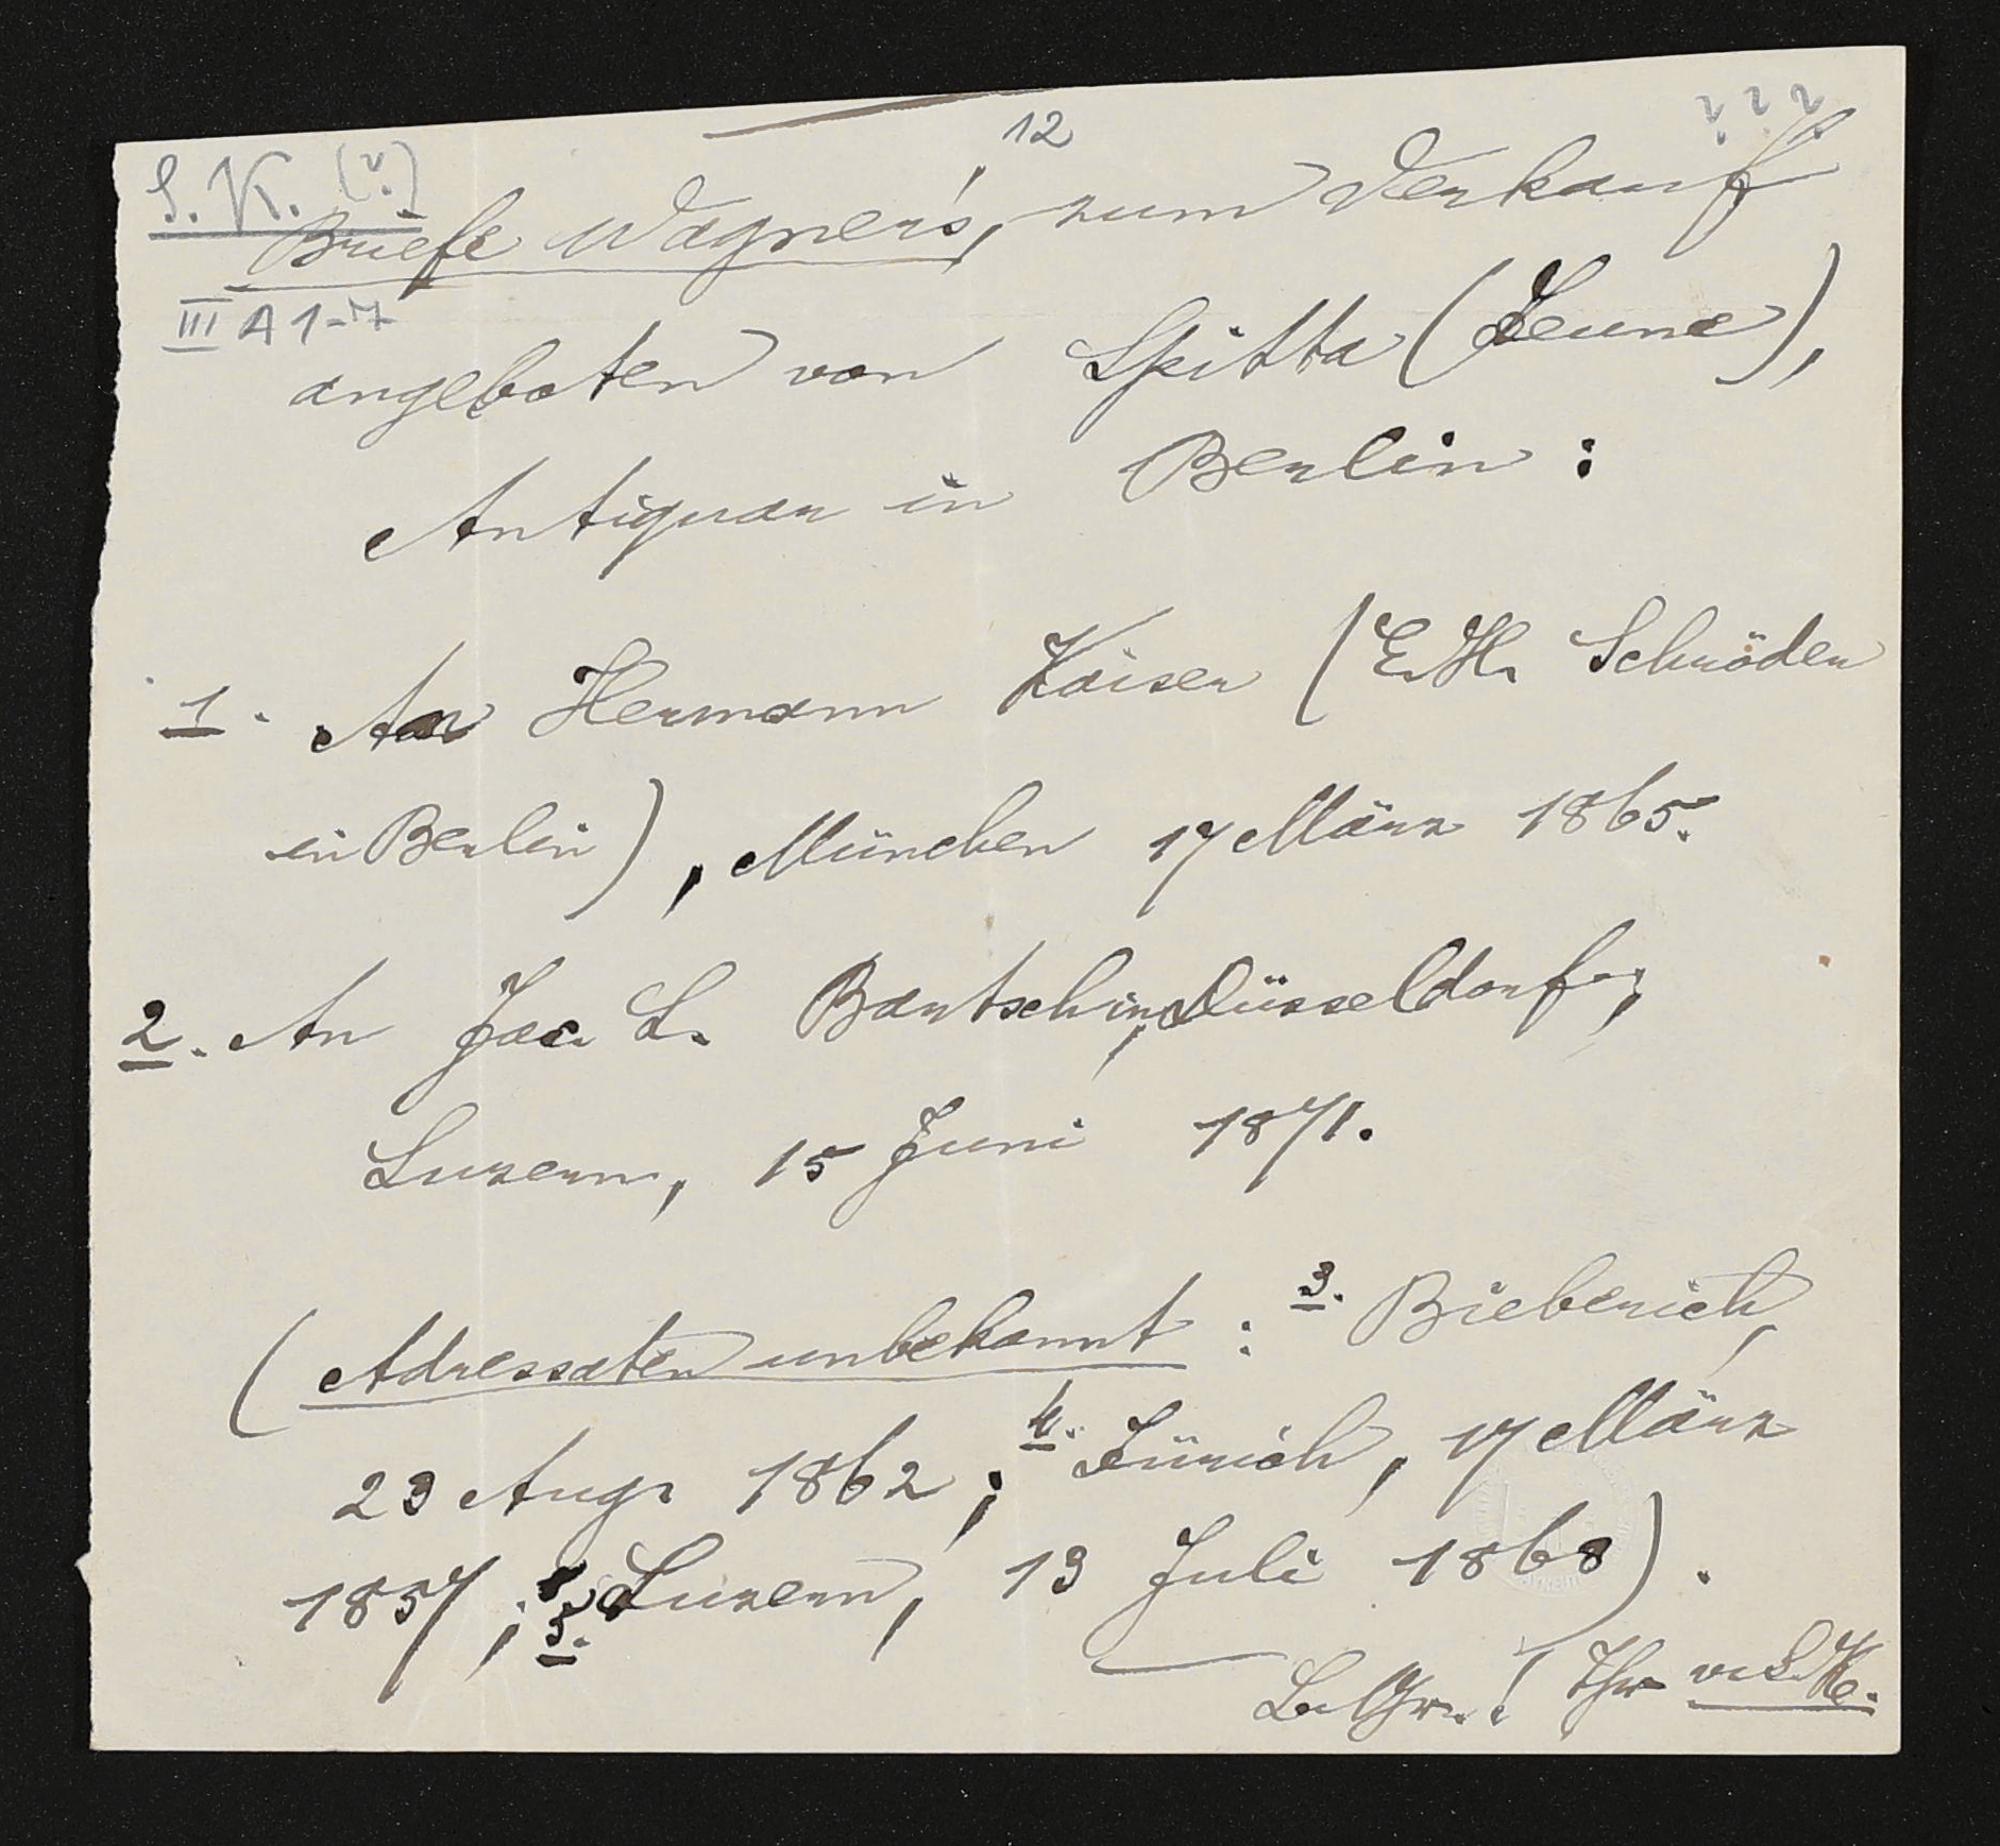 12
???
S. K. (?)
Briefe Wagner's, zum Verkauf
III A 1-7
angeboten von Spitta (Leune),
Antiquar in Berlin:
1. An Hermann Kaiser (E. H. Schröder
in Berlin), München 17 März 1865.
2. An Jac. L. Bartsch in Düsseldorf,
Luzern, 15 Juni 1871.
(Adressaten unbekannt: 3. Bieberich,
23 Aug. 1862; 4. Zürich, 17 März
1857; 5. Luzern, 13 Juli 1868).
Ihr